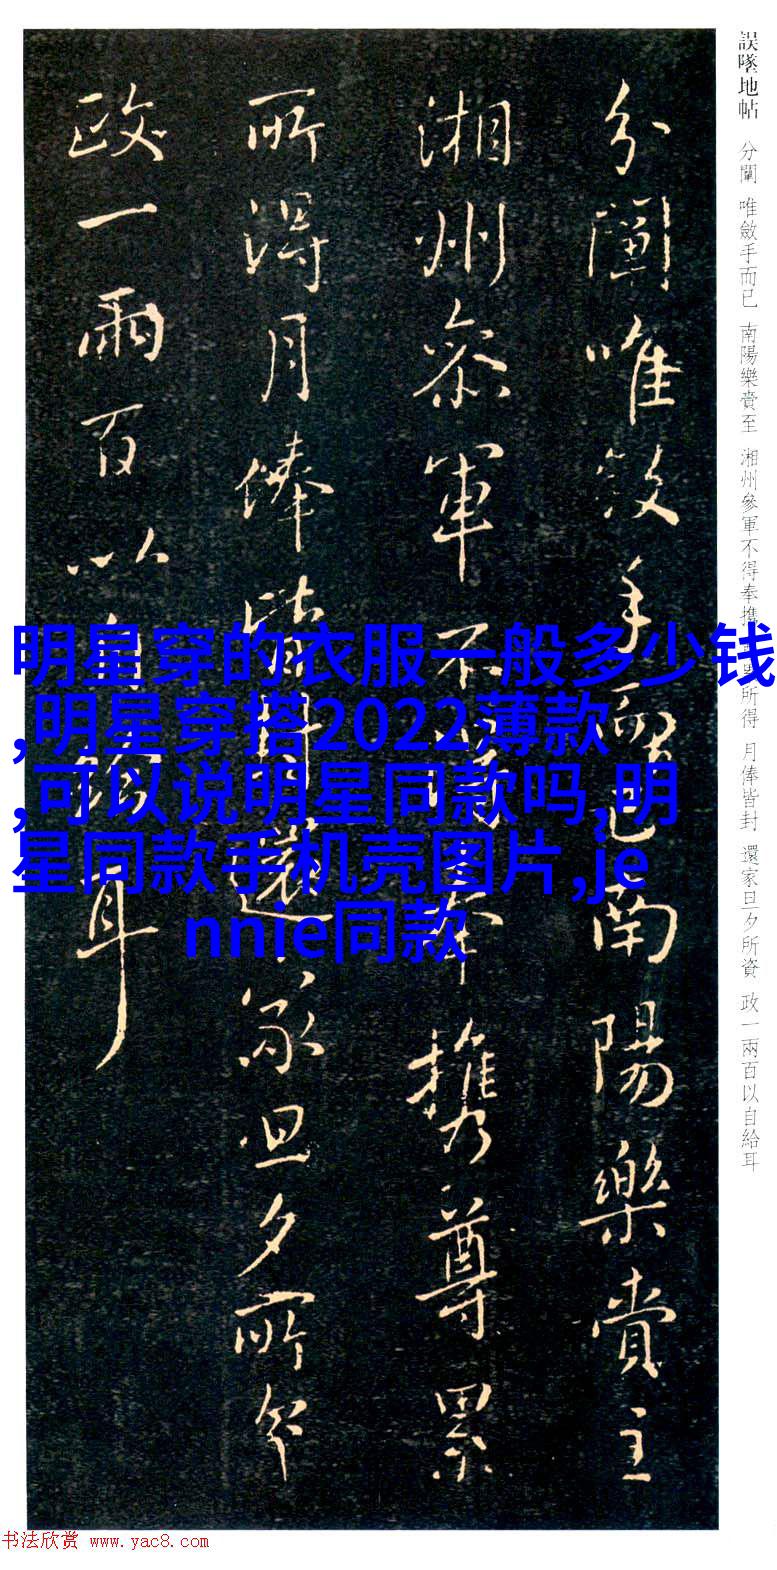 誤墜地帖 分闡 唯斂手而已 南陽樂賞至 湘州參軍不得奉携 所得 月俸皆封 還家旦夕所資 政一兩百以自給耳
分闡唯斂手而已南陽樂賞主
湘州參軍不奉携尊累
所得月俸皆封還家旦夕所
政一兩百以自給耳
明星穿的衣服一般多少钱
,明星穿搭2022薄款
,可以说明星同款吗,明
星同款手机壳图片,je
nnie同款
书法欣赏 www.yac8.com